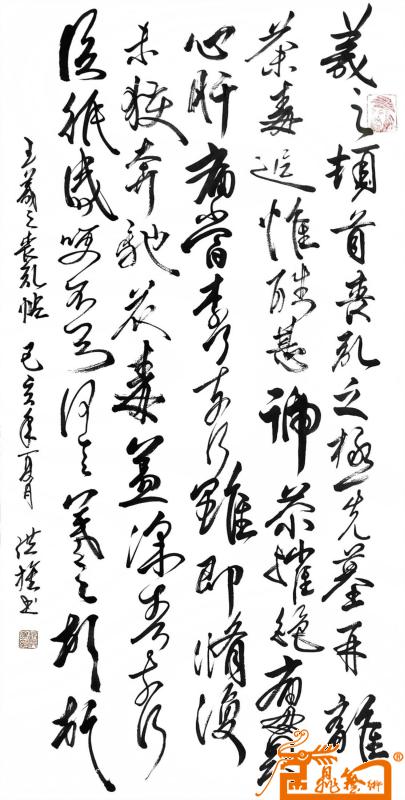 羲之頓首喪亂之極先墓再離
荼毒追惟酷甚號慕摧絕痛貫
心肝痛當奈何奈何雖即脩復
未獲奔馳哀毒益深奈何奈何
臨紙感哽不知何言羲之頓首
王羲之喪亂帖 己亥年夏月 洪雄书